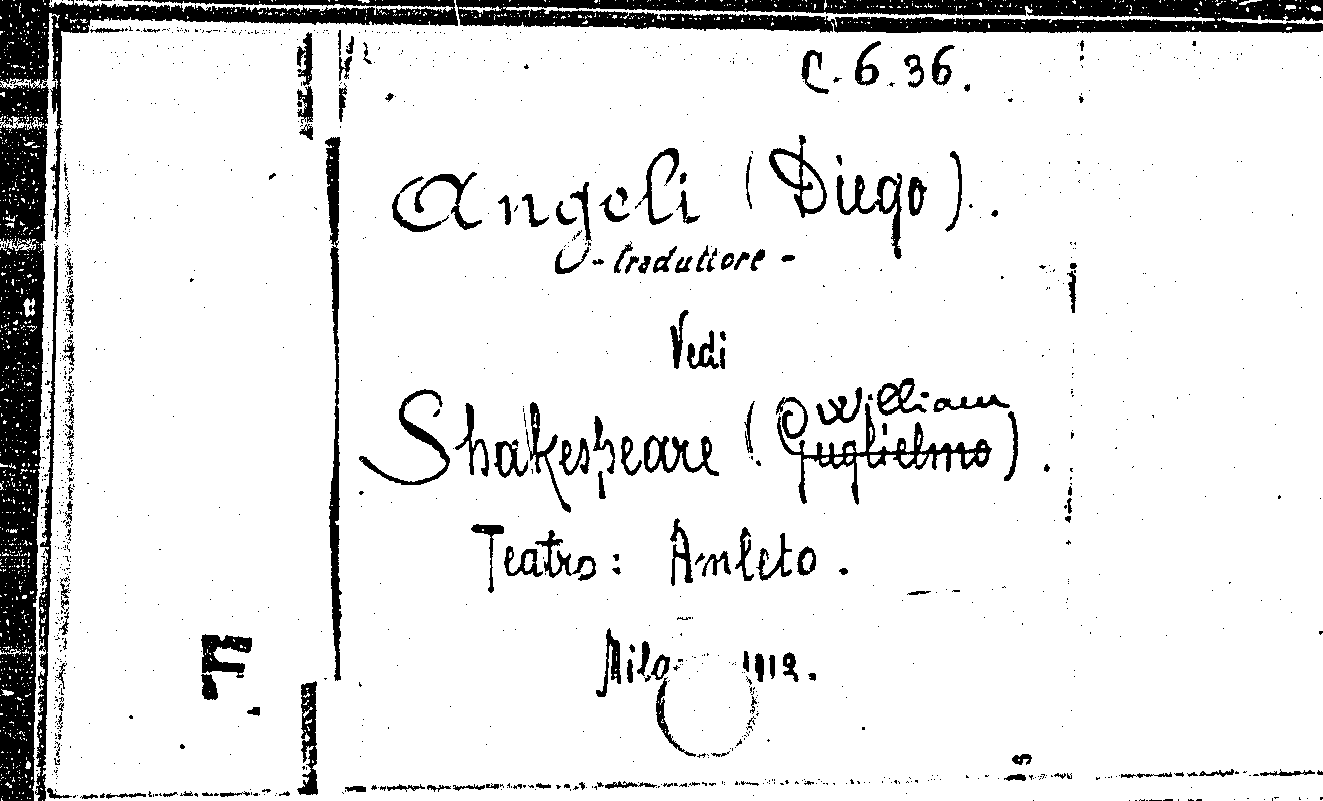 C. 6. 36.
Angeli (Diego).
- traduttore -
Vedi
William
Shakespeare (Guglielmo).
Teatro: Amleto.
1912.
F.